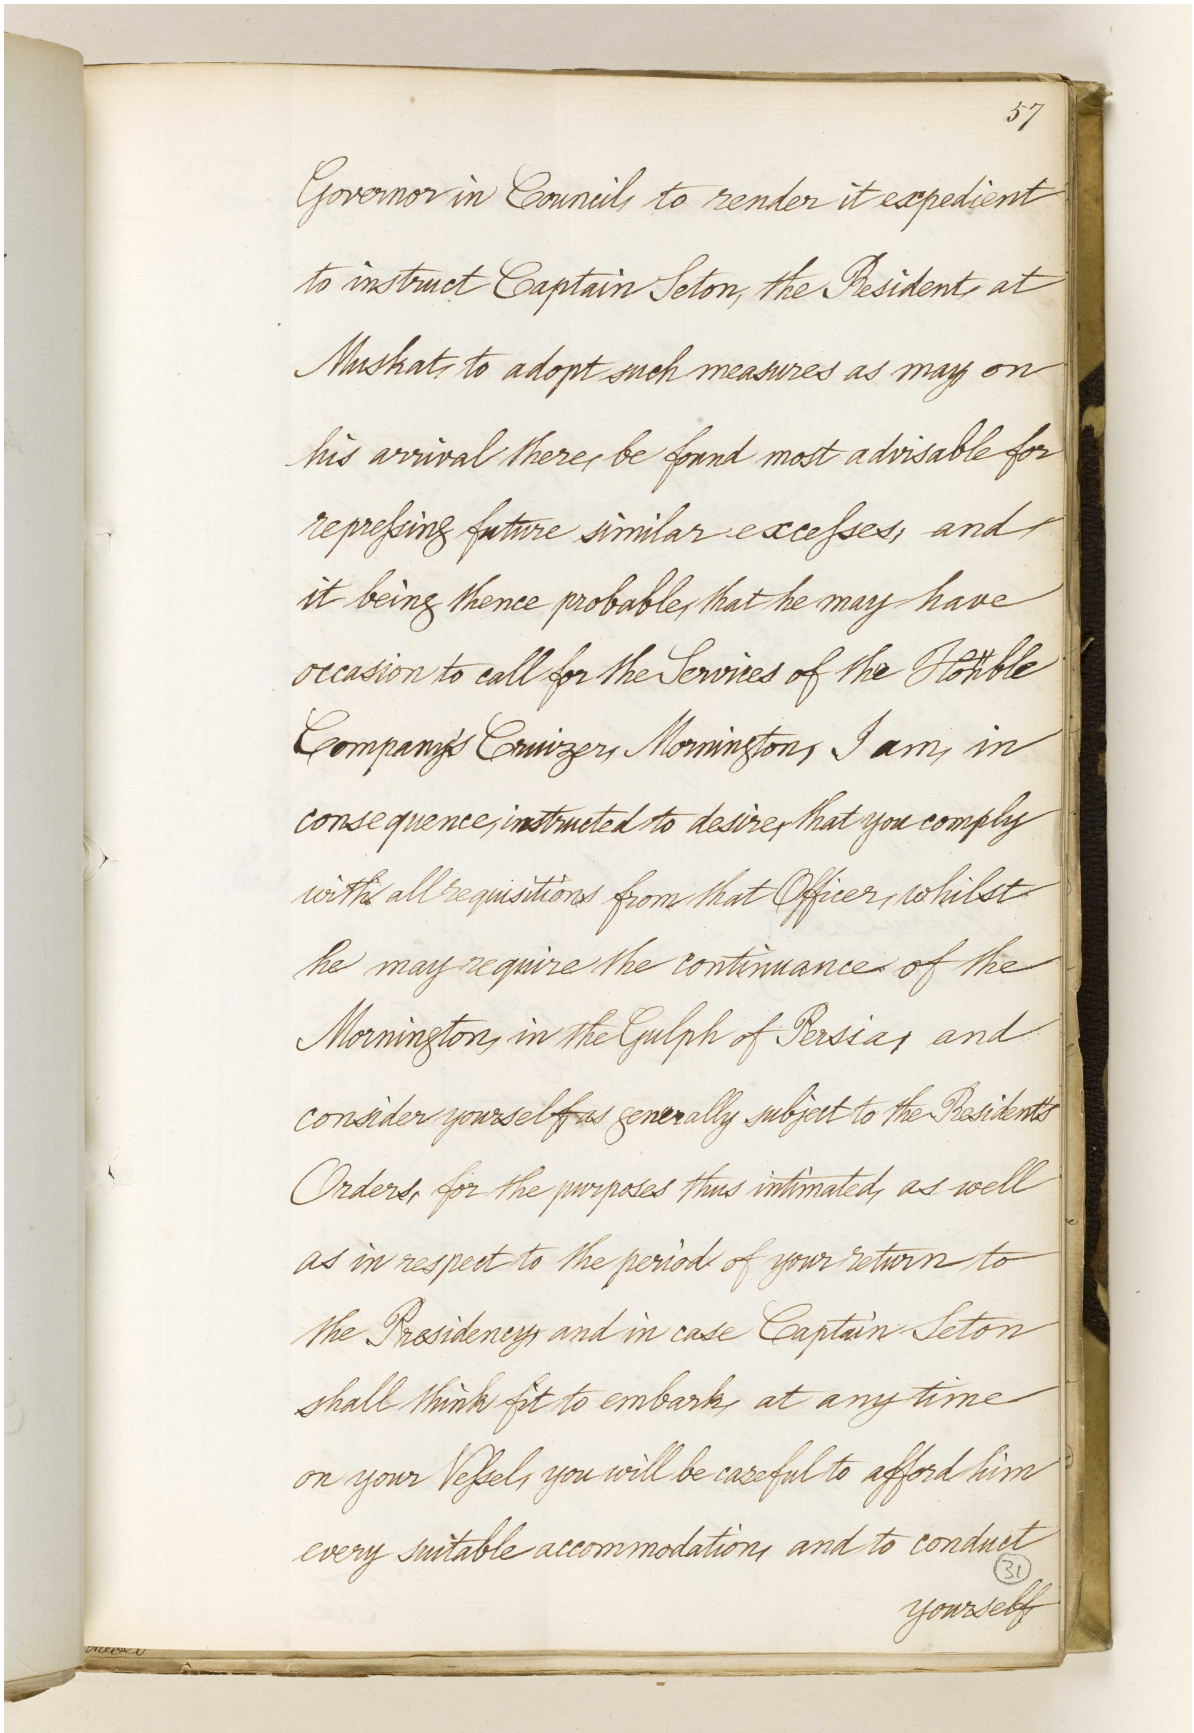 57
Governor in Council, to render it expedient
to instruct Captain Seton, the Resident, at
Muskat, to adopt such measures as may on
his arrival there, be found most advisable for
repreſsing future similar exceſses, and
it being thence probable, that he may have
occasion to call for the Services of the Honble
Company's Cruizer, Mornington, I am, in
consequence, instructed to desire, that you comply
with all requisitions from that Officer, whilst
he may require the continuance of the
Mornington, in the Gulph of Persia, and
consider yourself as generally subject to the Resident's
Orders, for the purposes thus intimated, as well
as in respect to the period of your return to
the Presidency, and in case Captain Seton
shall think fit to embark, at any time
on your Veſsel, you will be careful to afford him
every suitable accommodation, and to conduct
31
yourself